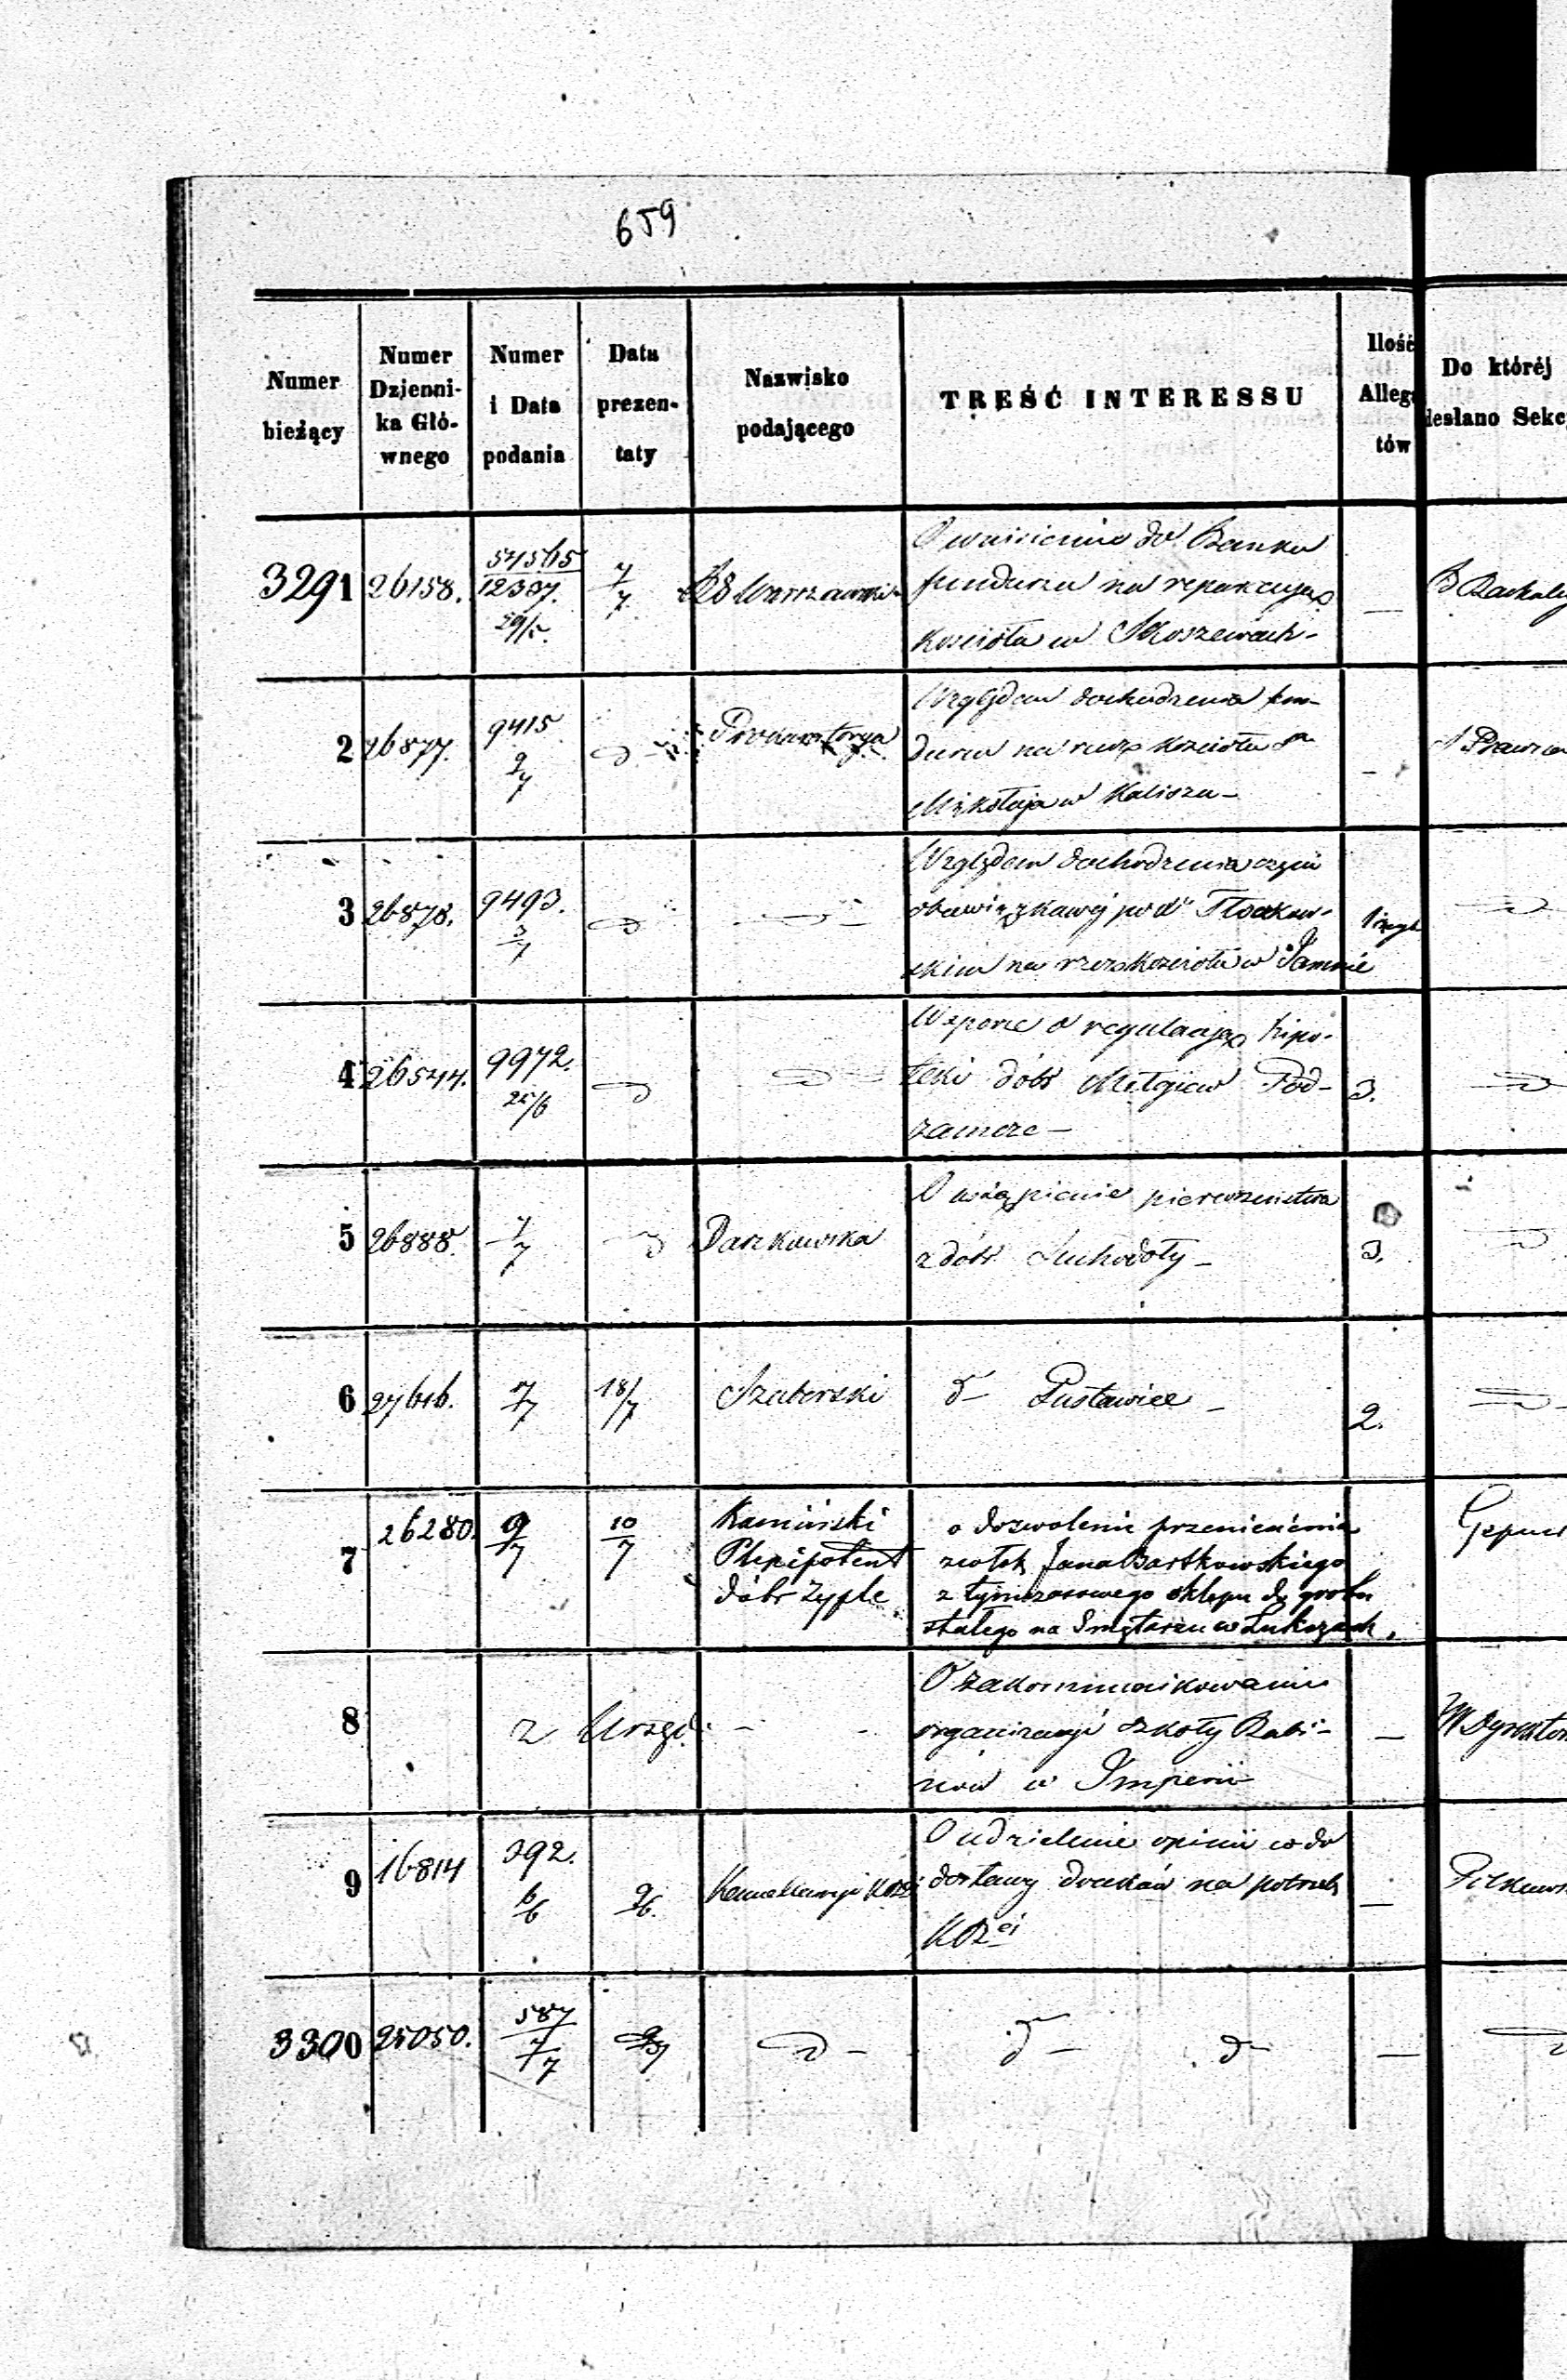 659
Numer bieżący
Numer Dzienni- ka Głó- wnego
Numer i Data podania
Data prezen- taty
Nazwisko podającego
TREŚĆ INTERESSU
Ilość Allega tów
Do któréj desłano Sekc
3291 26158. 54565 12337. 29/5. 7/7
O wniesienie do Banku
funduszu na reparacyę
kościoła w Skoszewach -
2 26877. 9415 2/7 d Prokuratorya
Względem dochodzenia fun-
duszu na rzecz kościoła Sgo
Mikołaja w Kaliszu -
3 26878. 9493. 3/7 d
Względem dochodzenia
obowiązkowéj pod
na rzecz kościoła w
4 26544. 9972. 25/6 d d 3. d
W sporze o regulacyę hipo-
teki dóbr Mełgiew Pod-
zamcze -
5 26888. 7/7 d Daszkowska 3. d
O ustąpienie pierwszeństwa
z dóbr Suchodoły -
6 27616. 7/7 18/7 Szaberski d- Pustawice - 2. d
7 26280. 9/7 10/7
Kamiński
Plenipotent
dóbr Zyple
o dozwolenie przeniesienia
zwłok Jana Bartkowskiego
z tymczasowego sklepu do grobu
stałego na Smętarzu w Łukszach.
8 z Urzęd. - -
O zakommunikowanie
organizacyi szkoły Rabi-
nów w Imperii
9 16814 392. 6/6 9/6. Kancellarya
O udzielenie opinii co do
dostawy druków na potrzeb
3300 25050. 587 7/7 d - d - d -